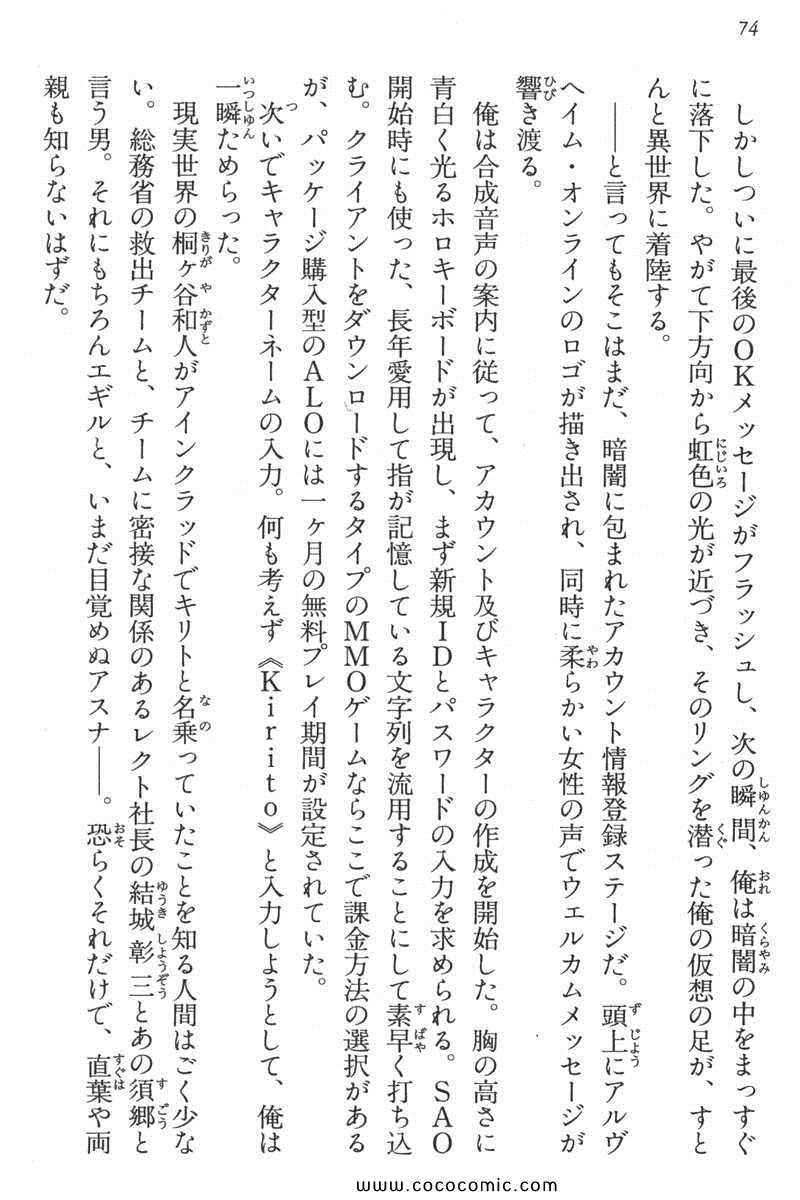 74
しかしついに最後のOKメッセージがフラッシュし、次の瞬間、俺は暗闇の中をまっすぐ
に落下した。やがて下方向から虹色の光が近づき、そのリングを潜った俺の仮想の足が、すと
んと異世界に着陸する。
――と言ってもそこはまだ、暗闇に包まれたアカウント情報登録ステージだ。頭上にアルヴ
ヘイム・オンラインのロゴが描き出され、同時に柔らかい女性の声でウェルカムメッセージが
響き渡る。
俺は合成音声の案内に従って、アカウント及びキャラクターの作成を開始した。胸の高さに
青白く光るホロキーボードが出現し、まず新規IDとパスワードの入力を求められる。SAO
開始時にも使った、長年愛用して指が記憶している文字列を流用することにして素早く打ち込
む。クライアントをダウンロードするタイプのMMOゲームならここで課金方法の選択がある
が、パッケージ購入型のALOには一ヶ月の無料プレイ期間が設定されていた。
次いでキャラクターネームの入力。何も考えず《Kirito》と入力しようとして、俺は
一瞬ためらった。
現実世界の桐ヶ谷和人がアインクラッドでキリトと名乗っていたことを知る人間はごく少な
い。総務省の救出チームと、チームに密接な関係のあるレクト社長の結城彰三とあの須郷と
言う男。それにもちろんエギルと、いまだ目覚めぬアスナ――。恐らくそれだけで、直葉や両
親も知らないはずだ。
www.cococomic.com